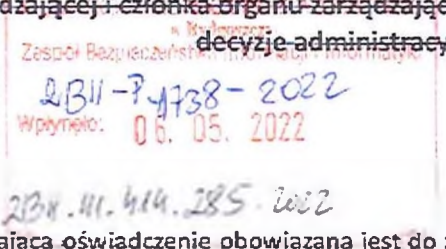 dzającej i członka organu zarządzając
w Bydgoszczy
decyzje administracy
Zespół Bezpieczeństwa Informacji i Informatyki
ZBII-P-1738-2022
Wpłynęło: 06. 05. 2022
ZBII.III.414.285.2022
ająca oświadczenie obowiązana jest do z